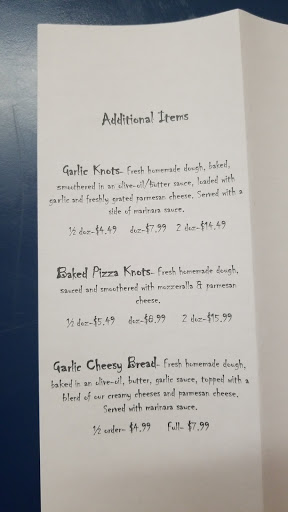 Additional Items
Garlic Knots- Fresh homemade dough, baked,
smoothered in an olive-oil/butter sauce, loaded with
garlic and freshly grated parmesan cheese. Served with a
side of marinara sauce.
½ doz-$4.49 doz-$7.99 2 doz-$14.49
Baked Pizza Knots- Fresh homemade dough,
sauced and smoothered with mozzeralla & parmesan
cheese.
½ doz-$5.49 doz-$8.99 2 doz-$15.99
Garlic Cheesy Bread- Fresh homemade dough,
baked in an olive-oil, butter, garlic sauce, topped with a
blend of our creamy cheeses and parmesan cheese.
Served with marinara sauce.
½ order- $4.99 Full- $7.99